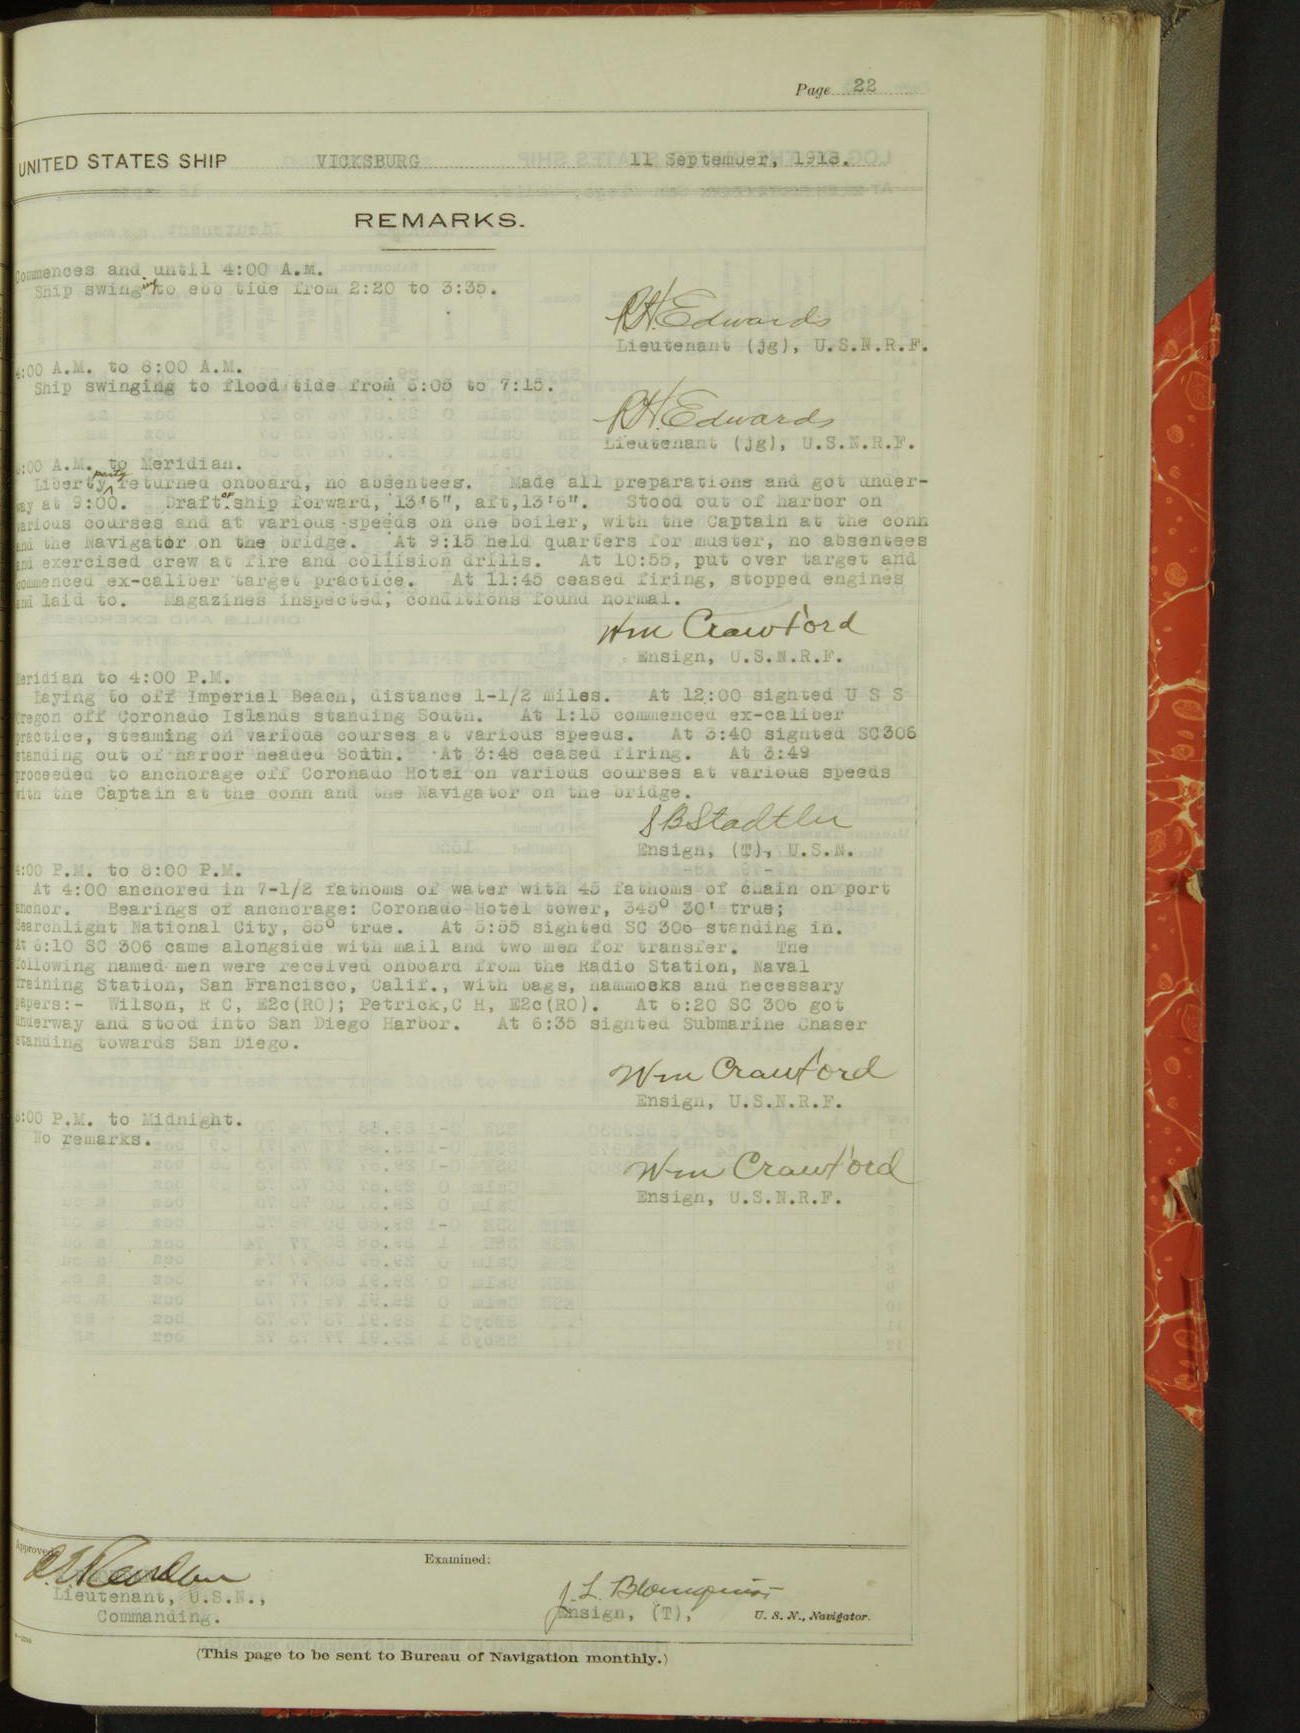 Page 22
UNITED STATES SHIP VICKSBURG 11 September, 1918.
REMARKS.
Commences and until 4:00 A.M.
Ship swinging to ebb tide from 2:20 to 3:35.
RH. Edwards
Lieutenant (jg), U.S.N.R.F.
4:00 A.M. to 8:00 A.M.
Ship swinging to flood tide from 6:05 to 7:15.
RH. Edwards
Lieutenant (jg), U.S.N.R.F.
8:00 A.M. to Meridian.
Liberty party returned onboard, no absentees. Made all preparations and got under-
way at 9:00. Draft of ship forward, 13'6", aft,13'6". Stood out of harbor on
various courses and at various speeds on one boiler, with the Captain at the conn
and the Navigator on the bridge. At 9:15 held quarters for muster, no absentees
and exercised crew at fire and collision drills. At 10:55, put over target and
commenced ex-caliber target practice. At 11:45 ceased firing, stopped engines
and laid to. Magazines inspected, conditions found normal.
Wm Crawford
Ensign, U.S.N.R.F.
Meridian to 4:00 P.M.
Laying to off Imperial Beach, distance 1-1/2 miles. At 12:00 sighted U S S
Oregon off Coronado Islands standing South. At 1:15 commenced ex-caliber
practice, steaming on various courses at various speeds. At 3:40 sighted SC306
standing out of harbor headed South. At 3:48 ceased firing. At 3:49
proceeded to anchorage off Coronado Hotel on various courses at various speeds
with the Captain at the conn and the Navigator on the bridge.
S B Stadtler
Ensign, (T), U.S.N.
4:00 P.M. to 8:00 P.M.
At 4:00 anchored in 7-1/2 fathoms of water with 45 fathoms of chain on port
anchor. Bearings of anchorage: Coronado Hotel tower, 345° 30' true;
Searchlight National City, 65° true. At 5:55 sighted SC 306 standing in.
At 6:10 SC 306 came alongside with mail and two men for transfer. The
following named men were received onboard from the Radio Station, Naval
Training Station, San Francisco, Calif., with bags, hammocks and necessary
papers:- Wilson, R C, E2c(RO); Petrick,C H, E2c(RO). At 6:20 SC 306 got
underway and stood into San Diego Harbor. At 6:35 sighted Submarine Chaser
standing towards San Diego.
Wm Crawford
Ensign, U.S.N.R.F.
8:00 P.M. to Midnight.
No remarks.
Wm Crawford
Ensign, U.S.N.R.F.
Approved:
Examined:
Lieutenant, U.S.N.,
Commanding.
J. L. Blomquist
Ensign, (T), U. S. N., Navigator.
(This page to be sent to Bureau of Navigation monthly.)